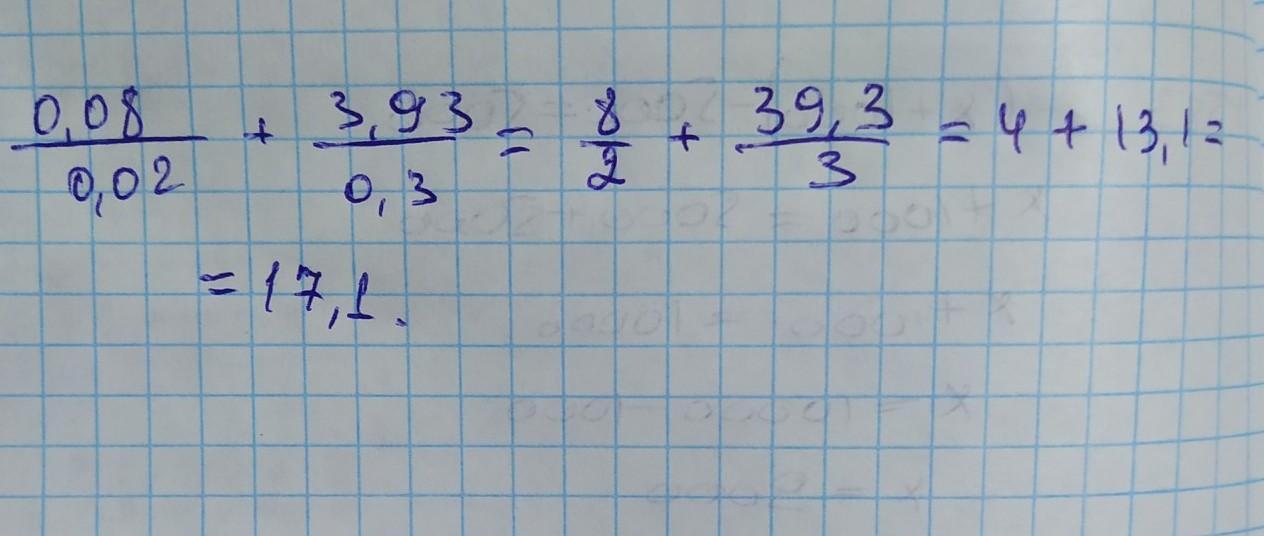 0,08/0,02 + 3,93/0,3 = 8/2 + 39,3/3 = 4 + 13,1 =
= 17,1.